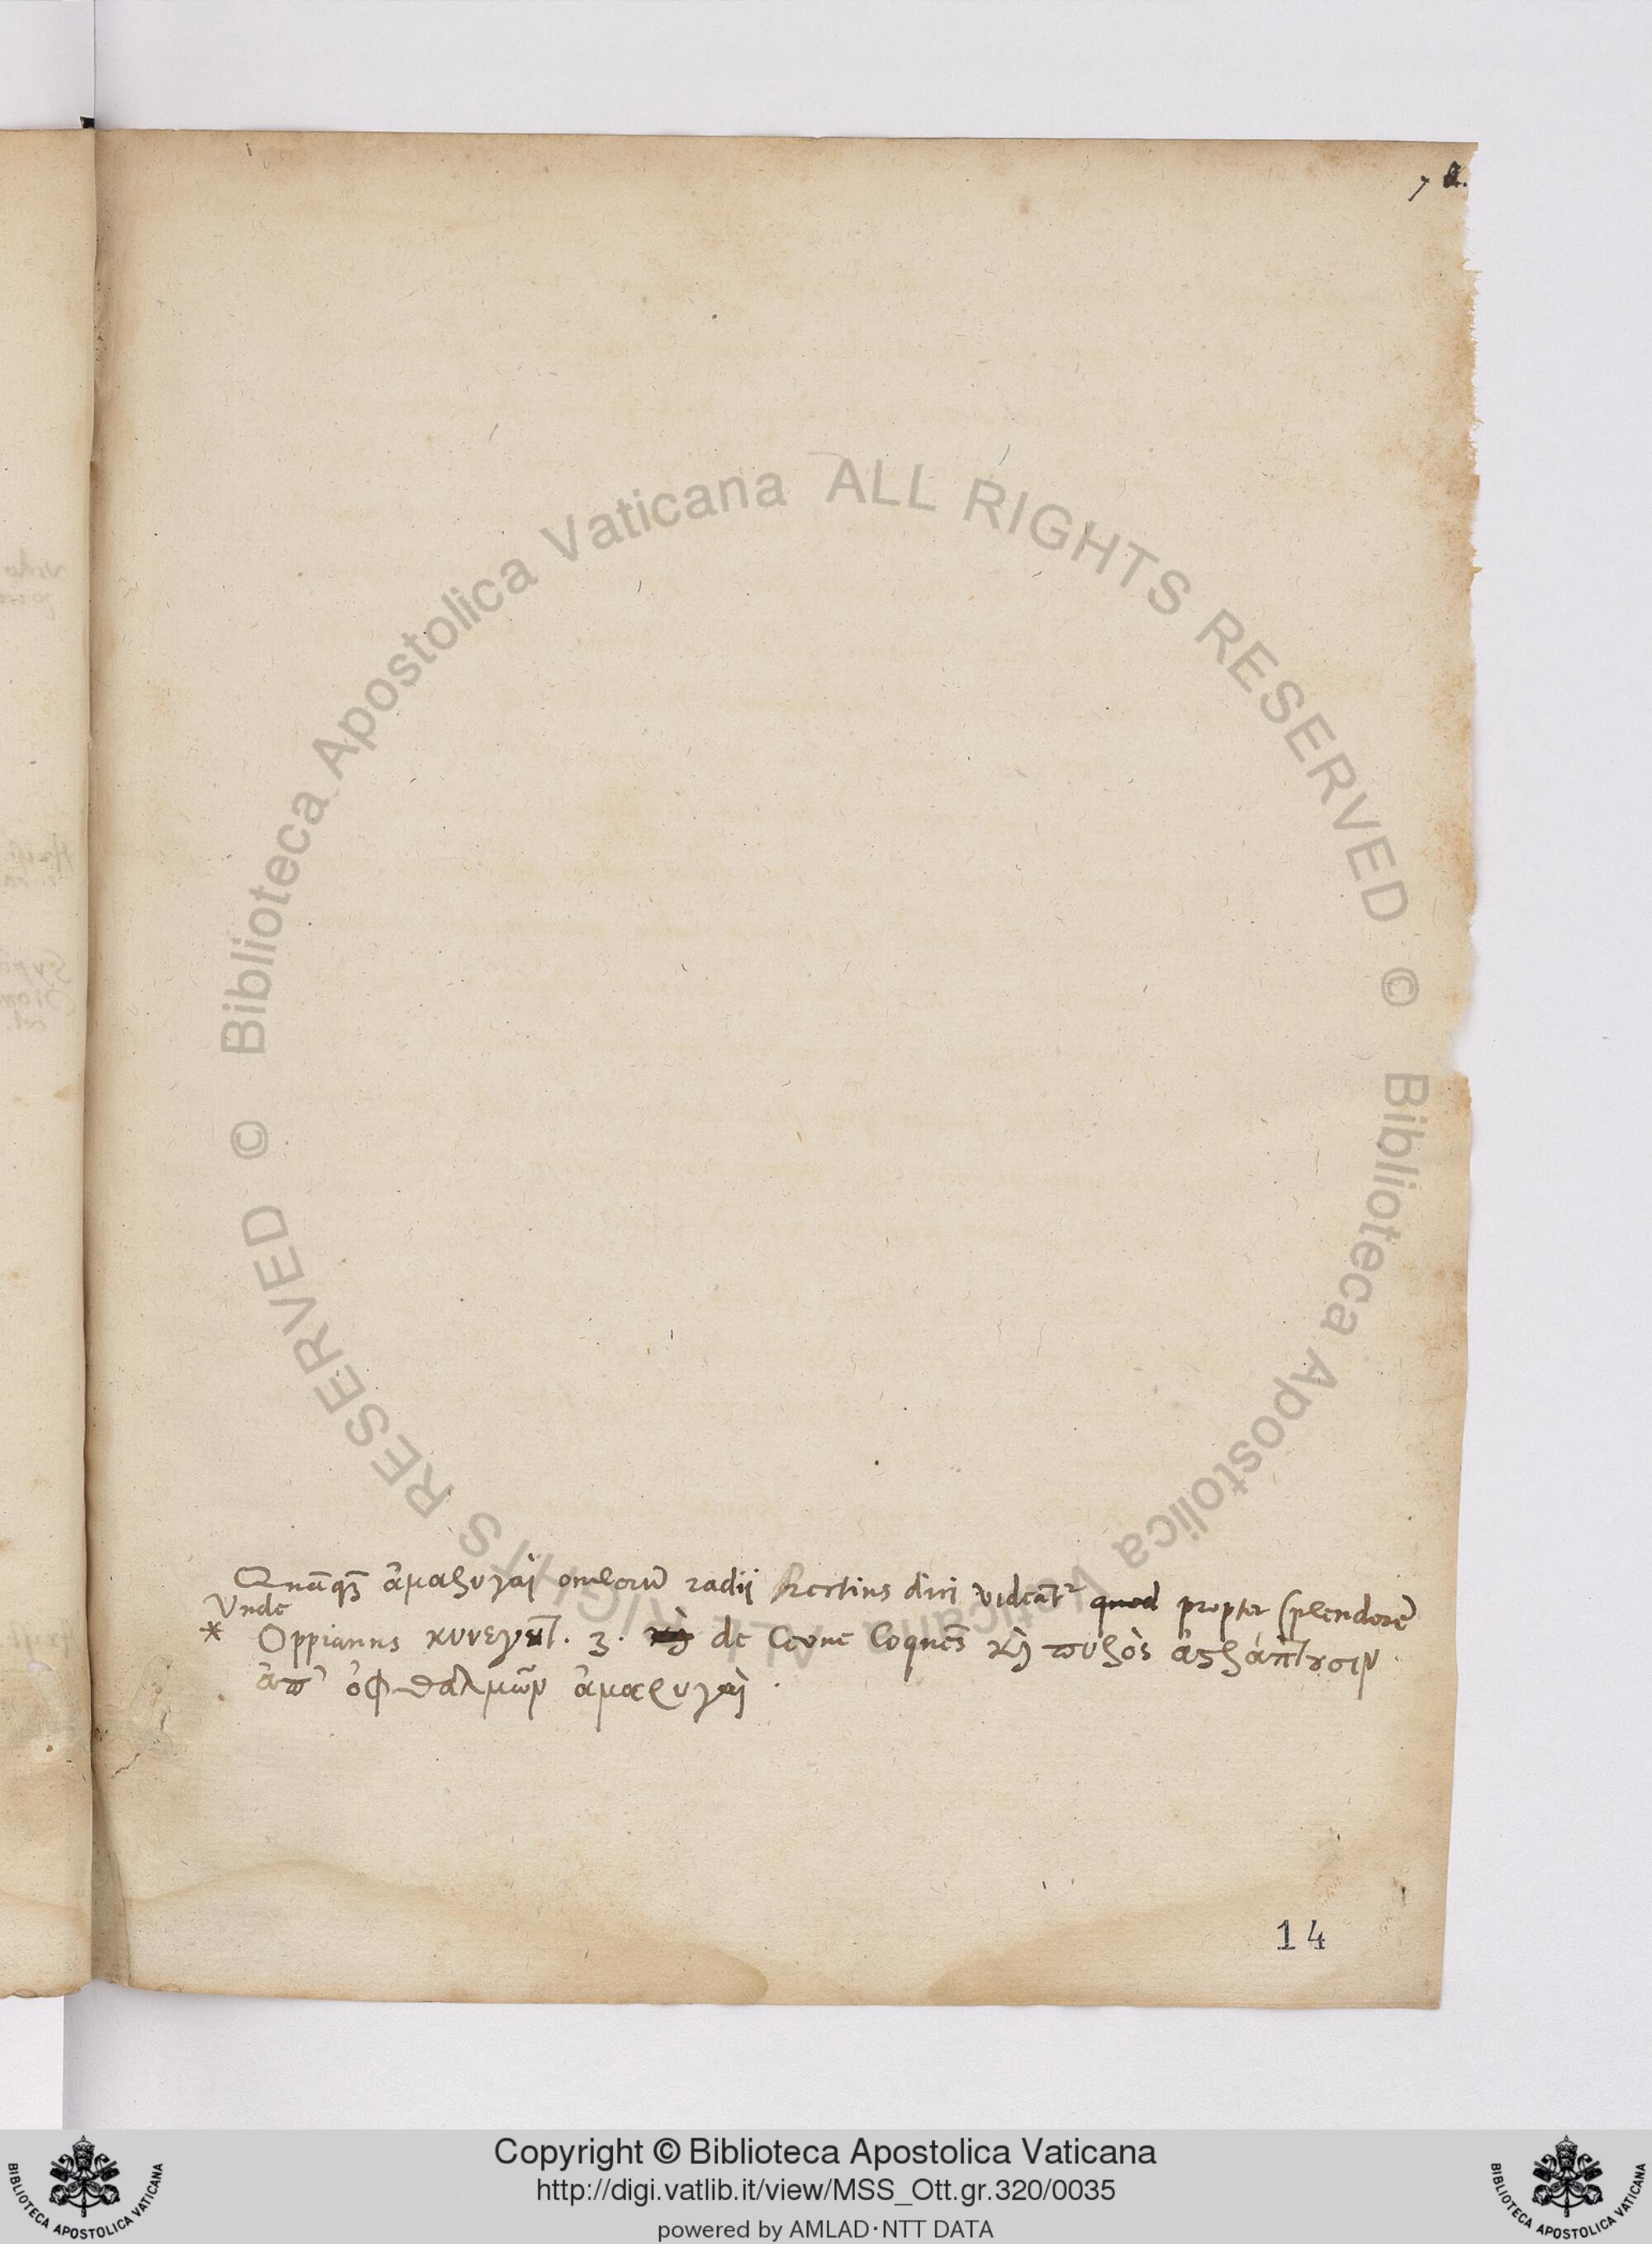 7 a.
Quāqȝ ἀμαρυγαὶ oculorū radii Rectius dici videāt² quod propter splendorē
Vnde
* Oppianus κυνεγητ. 3. de Leone loquēs καὶ πυρὸς ἀστράπτουσιν
ἀπ' ὀφθαλμῶν ἀμαρυγαὶ.
14
Biblioteca Apostolica Vaticana ALL RIGHTS RESERVED ©
Biblioteca Apostolica Vaticana ALL RIGHTS RESERVED ©
Copyright © Biblioteca Apostolica Vaticana
http://digi.vatlib.it/view/MSS_Ott.gr.320/0035
powered by AMLAD·NTT DATA
BIBLIOTECA APOSTOLICA VATICANA
BIBLIOTECA APOSTOLICA VATICANA